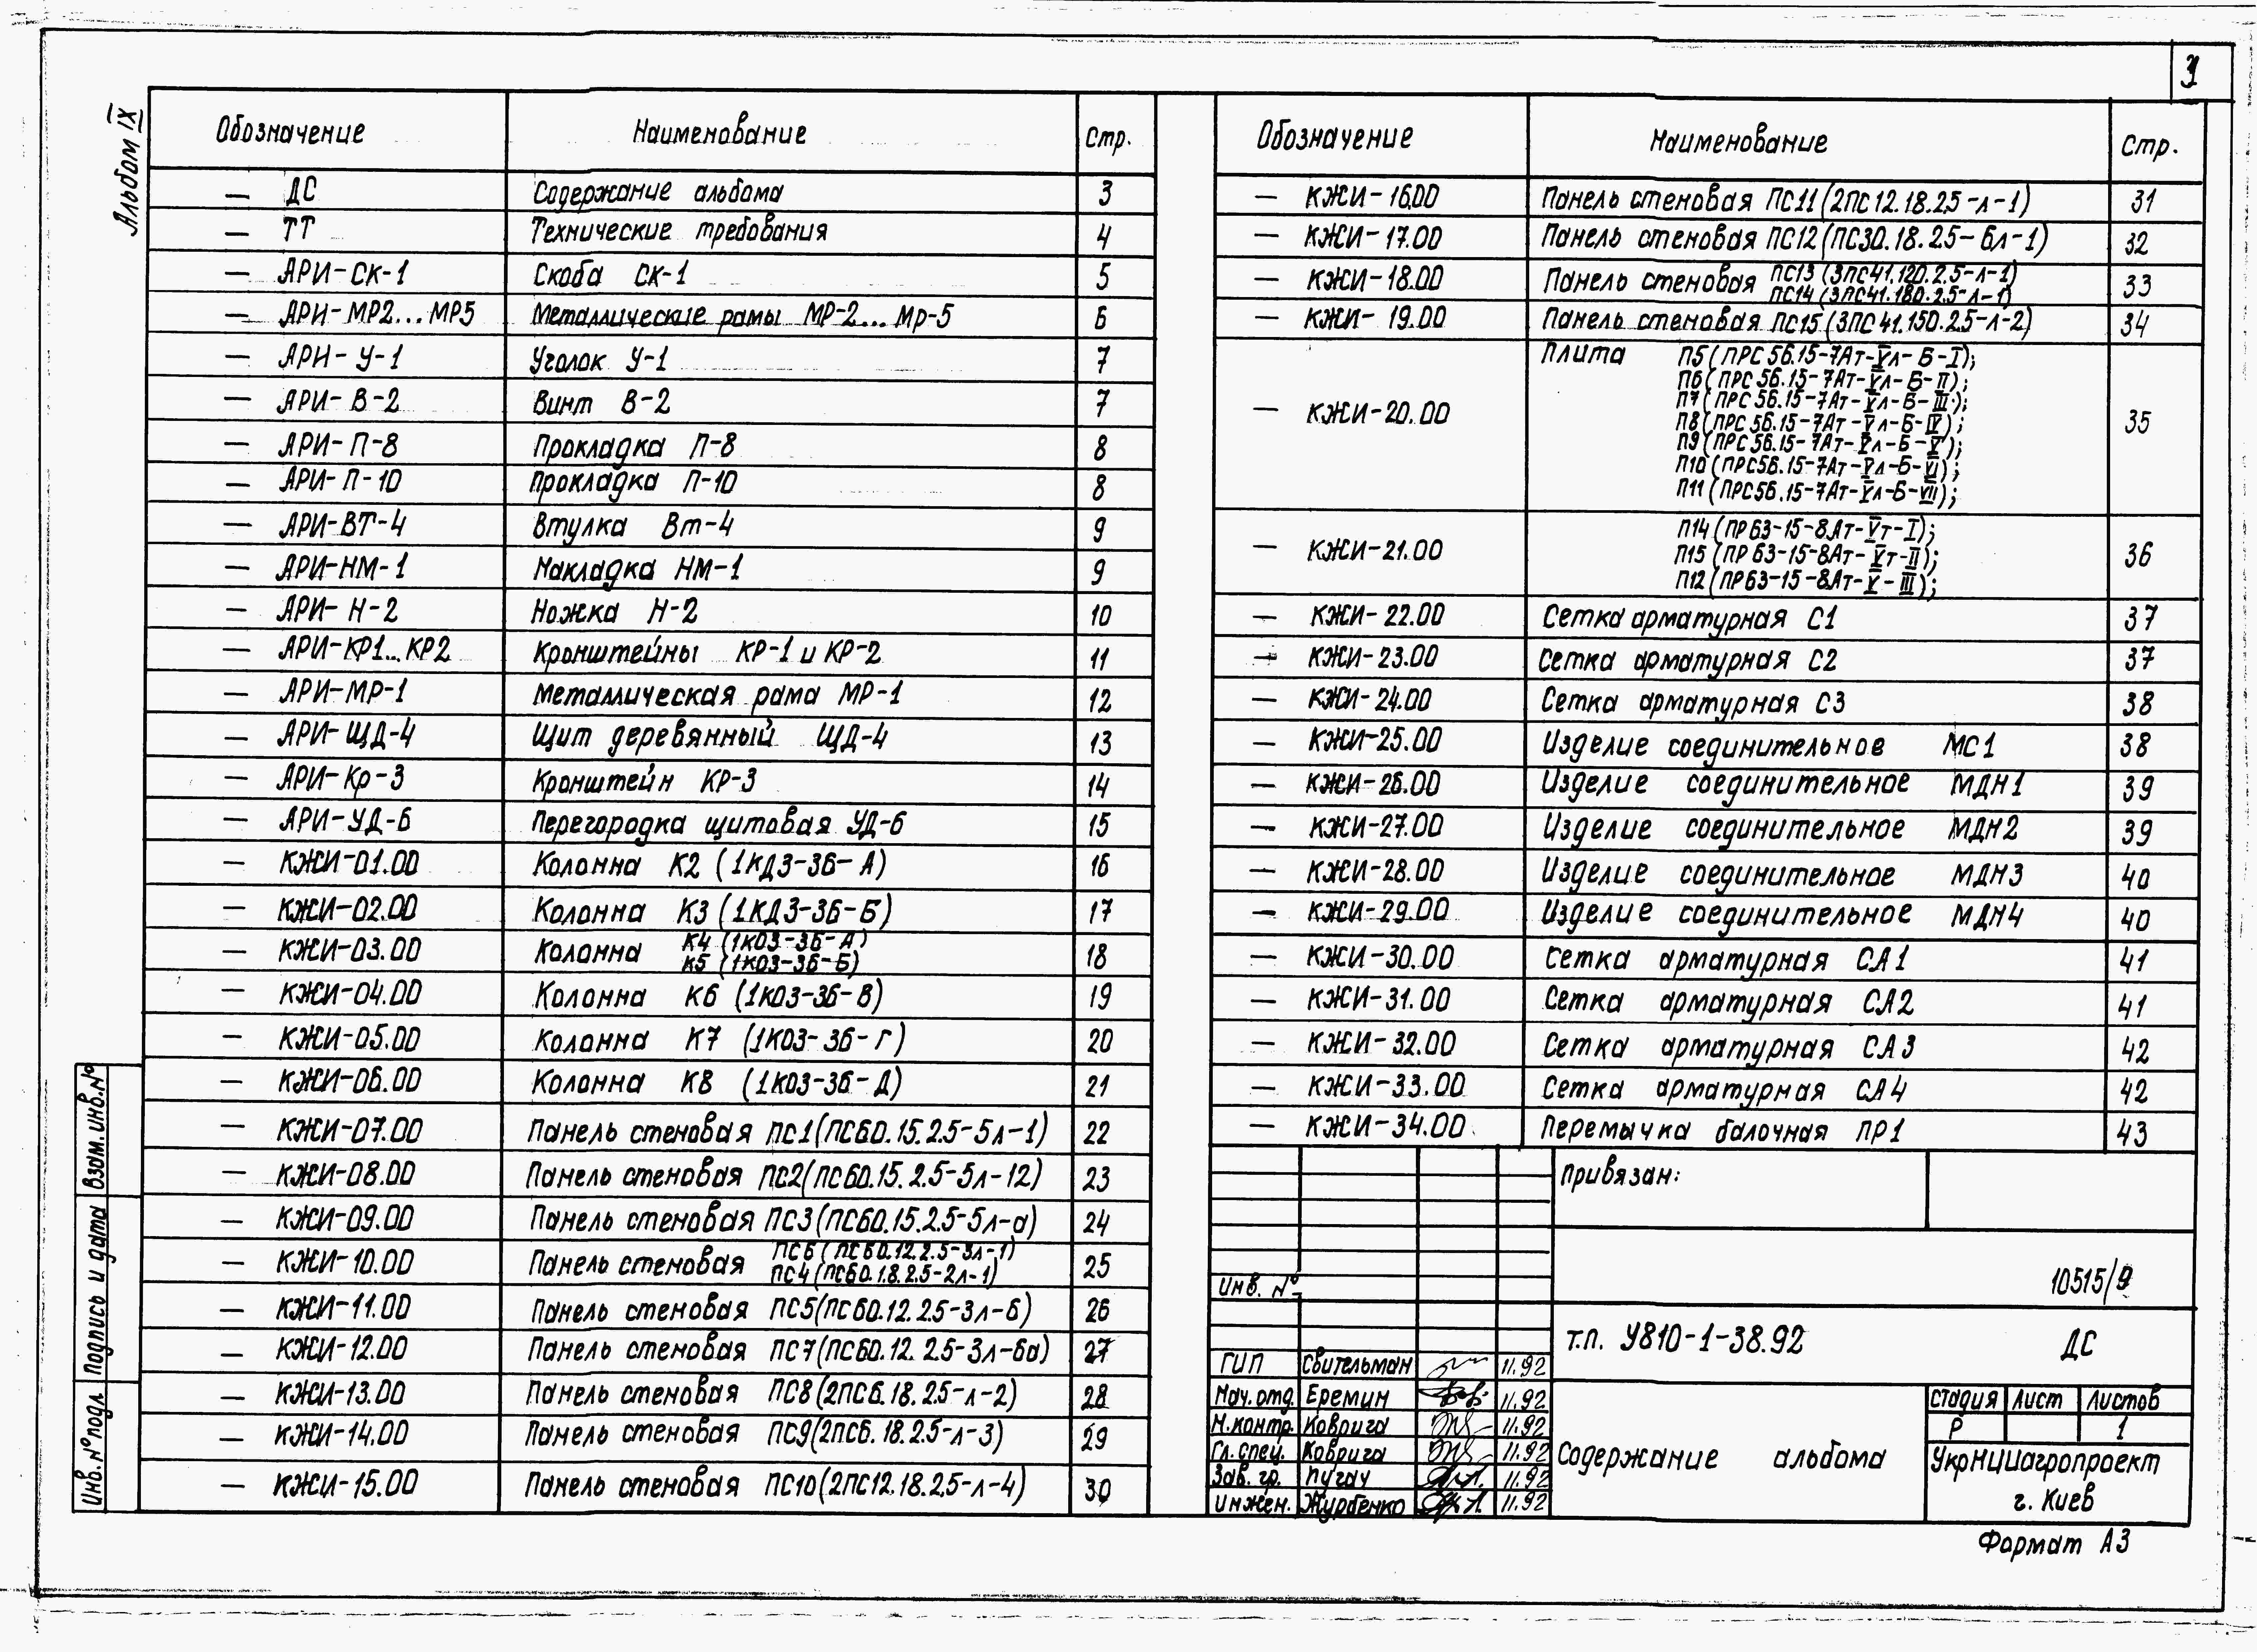 3
Альбом IX
Обозначение Наименование Стр.
— ДС Содержание альбома 3
— ТТ Технические требования 4
— АРИ-СК-1 Скоба СК-1 5
— АРИ-МР2...МР5 Металлические рамы МР-2...Мр-5 6
— АРИ-У-1 Уголок У-1 7
— АРИ-В-2 Винт В-2 7
— АРИ-П-8 Прокладка П-8 8
— АРИ-П-10 Прокладка П-10 8
— АРИ-ВТ-4 Втулка Вт-4 9
— АРИ-НМ-1 Накладка НМ-1 9
— АРИ-Н-2 Ножка Н-2 10
— АРИ-КР1...КР2 Кронштейны КР-1 и КР-2 11
— АРИ-МР-1 Металлическая рама МР-1 12
— АРИ-ЩД-4 Щит деревянный ЩД-4 13
— АРИ-Кр-3 Кронштейн КР-3 14
— АРИ-УД-6 Перегородка щитовая УД-6 15
— КЖИ-01.00 Колонна К2 (1КД3-36-А) 16
— КЖИ-02.00 Колонна К3 (1КД3-36-Б) 17
— КЖИ-03.00 Колонна К4 (1К03-36-А)
К5 (1К03-36-Б) 18
— КЖИ-04.00 Колонна К6 (1К03-36-В) 19
— КЖИ-05.00 Колонна К7 (1К03-36-Г) 20
— КЖИ-06.00 Колонна К8 (1К03-36-Д) 21
— КЖИ-07.00 Панель стеновая ПС1(ПС60.15.2.5-5л-1) 22
— КЖИ-08.00 Панель стеновая ПС2(ПС60.15.2.5-5л-12) 23
— КЖИ-09.00 Панель стеновая ПС3(ПС60.15.2.5-5л-а) 24
— КЖИ-10.00 Панель стеновая ПС6(ПС60.12.2.5-3л-1)
ПС4(ПС60.1.8.2.5-2л-1) 25
— КЖИ-11.00 Панель стеновая ПС5(ПС60.12.2.5-3л-б) 26
— КЖИ-12.00 Панель стеновая ПС7(ПС60.12.2.5-3л-ба) 27
— КЖИ-13.00 Панель стеновая ПС8(2ПС6.18.2.5-л-2) 28
— КЖИ-14.00 Панель стеновая ПС9(2ПС6.18.2.5-л-3) 29
— КЖИ-15.00 Панель стеновая ПС10(2ПС12.18.2.5-л-4) 30
Обозначение Наименование Стр.
— КЖИ-16.00 Панель стеновая ПС11(2ПС12.18.2.5-л-1) 31
— КЖИ-17.00 Панель стеновая ПС12(ПС30.18.2.5-6л-1) 32
— КЖИ-18.00 Панель стеновая ПС13(3ПС41.120.2.5-л-1)
ПС14(3ПС41.180.2.5-л-1) 33
— КЖИ-19.00 Панель стеновая ПС15(3ПС41.150.2.5-л-2) 34
Плита П5(ПРС56.15-7Ат-Vл-Б-I);
П6(ПРС56.15-7Ат-Vл-Б-II);
П7(ПРС56.15-7Ат-Vл-Б-III);
— КЖИ-20.00 П8(ПРС56.15-7Ат-Vл-Б-IV); 35
П9(ПРС56.15-7Ат-Vл-Б-V);
П10(ПРС56.15-7Ат-Vл-Б-VI);
П11(ПРС56.15-7Ат-Vл-Б-VII);
П14(ПР63-15-8Ат-Vт-I);
— КЖИ-21.00 П15(ПР63-15-8Ат-Vт-II); 36
П12(ПР63-15-8Ат-V-III);
— КЖИ-22.00 Сетка арматурная С1 37
— КЖИ-23.00 Сетка арматурная С2 37
— КЖИ-24.00 Сетка арматурная С3 38
— КЖИ-25.00 Изделие соединительное МС1 38
— КЖИ-26.00 Изделие соединительное МДН1 39
— КЖИ-27.00 Изделие соединительное МДН2 39
— КЖИ-28.00 Изделие соединительное МДН3 40
— КЖИ-29.00 Изделие соединительное МДН4 40
— КЖИ-30.00 Сетка арматурная СА1 41
— КЖИ-31.00 Сетка арматурная СА2 41
— КЖИ-32.00 Сетка арматурная СА3 42
— КЖИ-33.00 Сетка арматурная СА4 42
— КЖИ-34.00 Перемычка балочная ПР1 43
Привязан:
Инв. №
10515/9
т.п. У810-1-38.92 ДС
ГИП Свительман 11.92
Нач.отд. Еремин 11.92
Н.контр. Коврига 11.92
Гл.спец. Коврига 11.92
Зав.гр. Пугач 11.92
Инжен. Журбенко 11.92
Содержание альбома
Стадия Лист Листов
Р 1
УкрНИИагропроект
г. Киев
Формат А3
Взам.инв.№
Подпись и дата
Инв.№подл.